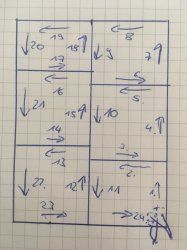 19 8
20 18 9 7
17 6
16 5
21 15 10 4
14 3
13 2
22 12 11 1
23 24